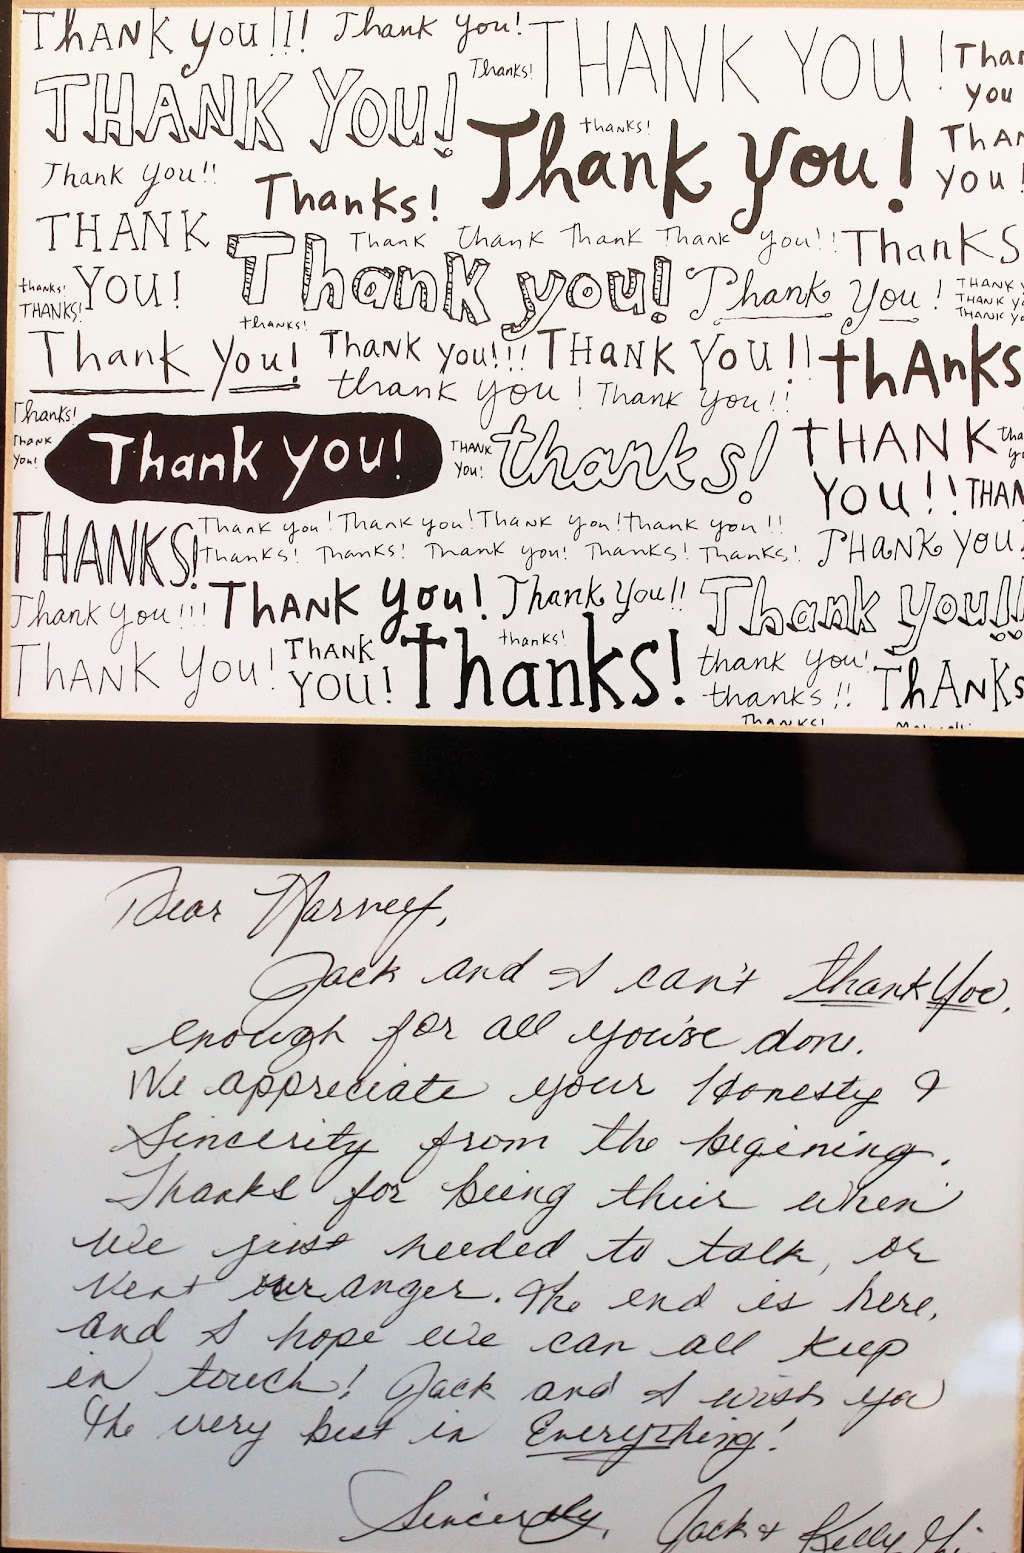 THANK you!!! Thank you! THANK YOU!
Thanks!
THANK YOU!
Thank you!
thanks!
Thank you!!
Thanks!
THANK YOU!
Thank thank Thank Thank you!!
Thanks
thanks!
THANKS!
Thank you!
Thank You!
thanks!
Thank you! Thank you!!! THANK YOU!! thanks
thank you! Thank you!!
Thanks!
Thank you!
Thank you!
THANK YOU!
thanks!
THANK YOU!!
THANKS!
Thank you! Thank you! Thank you! thank you!!
Thanks! Thanks! Thank you! Thanks! Thanks!
THANK YOU!
Thank you!!! THANK you! Thank You!! Thank you!!
THANK YOU!
THANK YOU!
Thanks!
thanks!
thank you!
thanks!!
THANKS
THANKS!
Dear
Jack and I can't thank You
enough for all you've done.
We appreciate your Honesty &
Sincerity from the begining.
Thanks for being thier when
we just needed to talk, or
vent our anger. The end is here,
and I hope we can all keep
in touch! Jack and I wish you
the very best in Everything!
Sincerely, Jack & Kelly